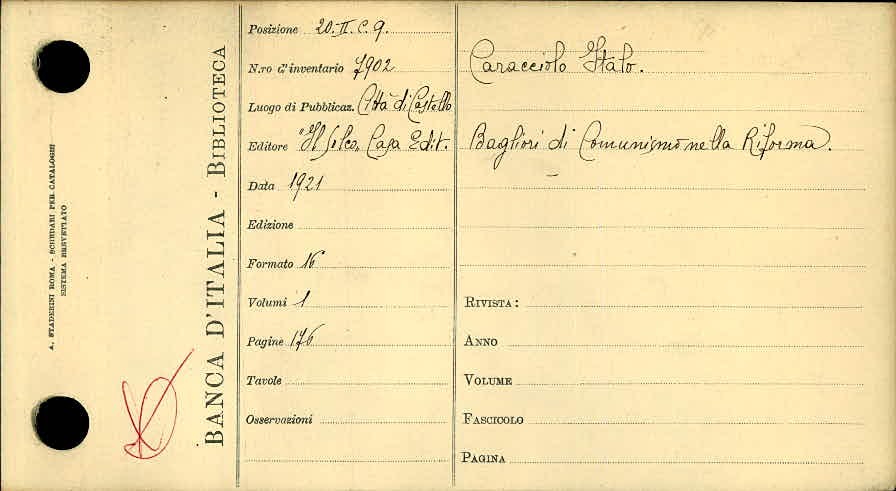 A. STADERINI ROMA - SCHEDARI PER CATALOGHI
SISTEMA BREVETTATO
BANCA D'ITALIA - BIBLIOTECA
Posizione 20.II.C.9.
N.ro d'inventario 7902
Luogo di Pubblicaz. Città di Castello
Editore "Il Solco" Casa Edit.
Data 1921
Edizione
Formato 16
Volumi 1
Pagine 176
Tavole
Osservazioni
Caracciolo Italo.
Bagliori di Comunismo nella Riforma.
RIVISTA:
ANNO
VOLUME
FASCICOLO
PAGINA